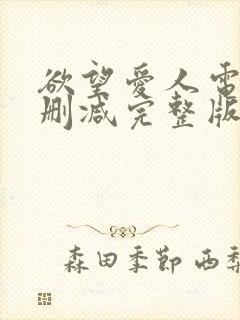 欲望爱人電
删减完整版
森田季節 西梨